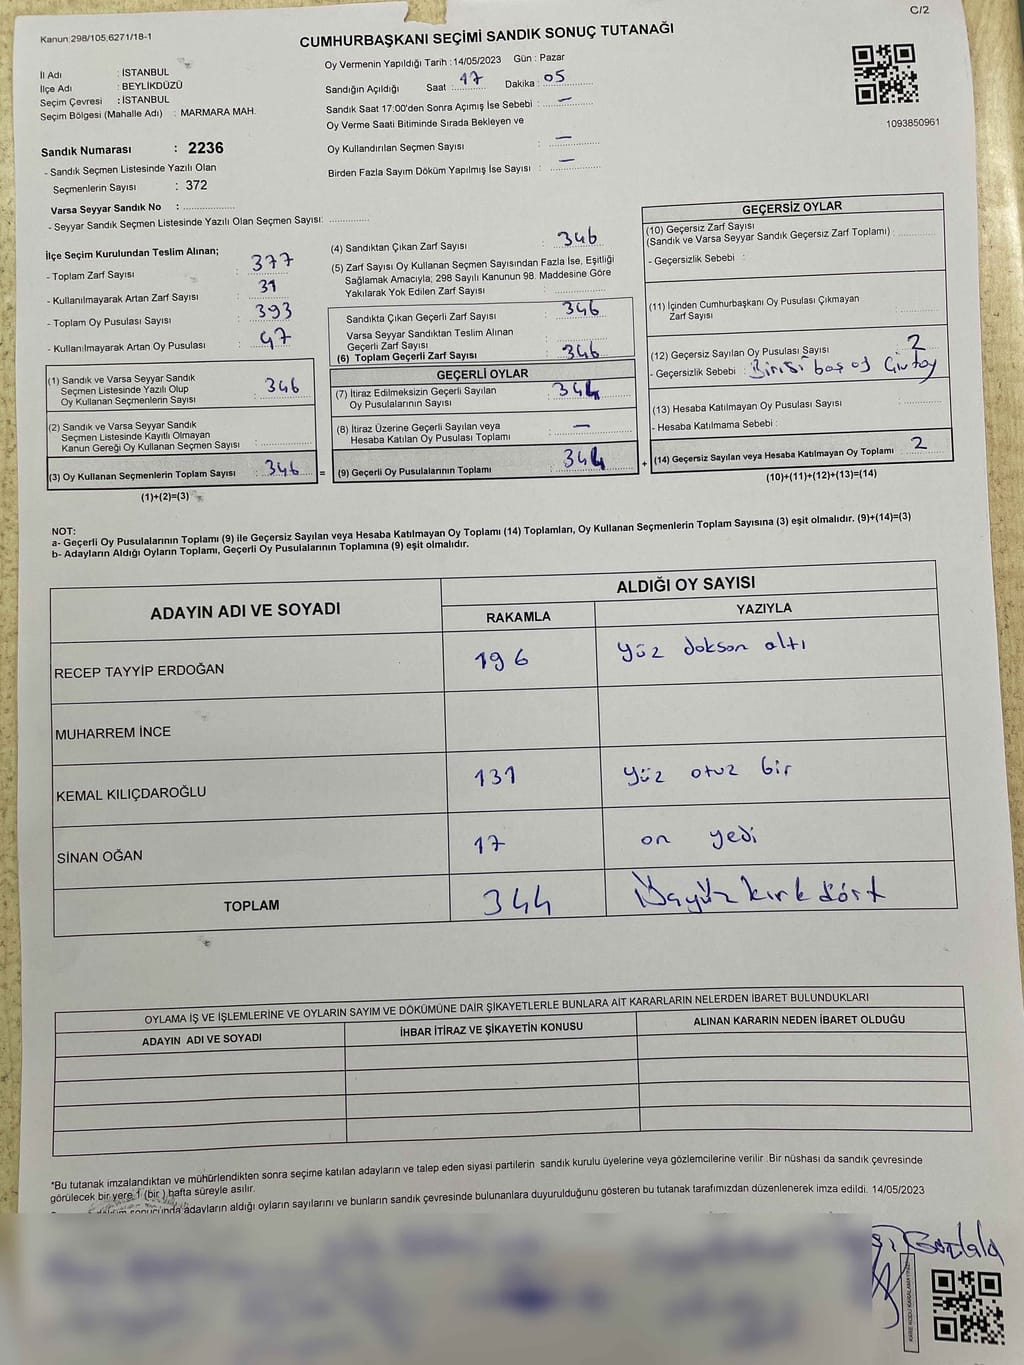 C/2
Kanun:298/105,6271/18-1
CUMHURBAŞKANI SEÇİMİ SANDIK SONUÇ TUTANAĞI
İl Adı : İSTANBUL
İlçe Adı : BEYLİKDÜZÜ
Seçim Çevresi : İSTANBUL
Seçim Bölgesi (Mahalle Adı) : MARMARA MAH.
Oy Vermenin Yapıldığı Tarih : 14/05/2023 Gün : Pazar
Sandığın Açıldığı Saat : 17 Dakika : 05
Sandık Saat 17:00'den Sonra Açımış İse Sebebi : —
Oy Verme Saati Bitiminde Sırada Bekleyen ve
Oy Kullandırılan Seçmen Sayısı : —
Birden Fazla Sayım Döküm Yapılmış İse Sayısı : —
1093850961
Sandık Numarası : 2236
- Sandık Seçmen Listesinde Yazılı Olan
Seçmenlerin Sayısı : 372
Varsa Seyyar Sandık No :
- Seyyar Sandık Seçmen Listesinde Yazılı Olan Seçmen Sayısı:
İlçe Seçim Kurulundan Teslim Alınan;
- Toplam Zarf Sayısı : 377
- Kullanılmayarak Artan Zarf Sayısı : 31
- Toplam Oy Pusulası Sayısı : 393
- Kullanılmayarak Artan Oy Pusulası : 47
(1) Sandık ve Varsa Seyyar Sandık
Seçmen Listesinde Yazılı Olup
Oy Kullanan Seçmenlerin Sayısı : 346
(2) Sandık ve Varsa Seyyar Sandık
Seçmen Listesinde Kayıtlı Olmayan
Kanun Gereği Oy Kullanan Seçmen Sayısı :
(3) Oy Kullanan Seçmenlerin Toplam Sayısı : 346 =
(1)+(2)=(3)
(4) Sandıktan Çıkan Zarf Sayısı : 346
(5) Zarf Sayısı Oy Kullanan Seçmen Sayısından Fazla İse, Eşitliği
Sağlamak Amacıyla; 298 Sayılı Kanunun 98. Maddesine Göre
Yakılarak Yok Edilen Zarf Sayısı :
Sandıkta Çıkan Geçerli Zarf Sayısı : 346
Varsa Seyyar Sandıktan Teslim Alınan
Geçerli Zarf Sayısı :
(6) Toplam Geçerli Zarf Sayısı : 346
GEÇERLİ OYLAR
(7) İtiraz Edilmeksizin Geçerli Sayılan
Oy Pusulalarının Sayısı : 344
(8) İtiraz Üzerine Geçerli Sayılan veya
Hesaba Katılan Oy Pusulası Toplamı : —
(9) Geçerli Oy Pusulalarının Toplamı : 344 +
GEÇERSİZ OYLAR
(10) Geçersiz Zarf Sayısı
(Sandık ve Varsa Seyyar Sandık Geçersiz Zarf Toplamı) :
- Geçersizlik Sebebi :
(11) İçinden Cumhurbaşkanı Oy Pusulası Çıkmayan
Zarf Sayısı :
(12) Geçersiz Sayılan Oy Pusulası Sayısı : 2
- Geçersizlik Sebebi : Birisi boş oy
(13) Hesaba Katılmayan Oy Pusulası Sayısı :
- Hesaba Katılmama Sebebi :
(14) Geçersiz Sayılan veya Hesaba Katılmayan Oy Toplamı : 2
(10)+(11)+(12)+(13)=(14)
NOT:
a- Geçerli Oy Pusulalarının Toplamı (9) ile Geçersiz Sayılan veya Hesaba Katılmayan Oy Toplamı (14) Toplamları, Oy Kullanan Seçmenlerin Toplam Sayısına (3) eşit olmalıdır. (9)+(14)=(3)
b- Adayların Aldığı Oyların Toplamı, Geçerli Oy Pusulalarının Toplamına (9) eşit olmalıdır.
ADAYIN ADI VE SOYADI
ALDIĞI OY SAYISI
RAKAMLA YAZIYLA
RECEP TAYYİP ERDOĞAN 196 Yüz doksan altı
MUHARREM İNCE
KEMAL KILIÇDAROĞLU 131 Yüz otuz bir
SİNAN OĞAN 17 on yedi
TOPLAM 344 Üçyüz kırk dört
OYLAMA İŞ VE İŞLEMLERİNE VE OYLARIN SAYIM VE DÖKÜMÜNE DAİR ŞİKAYETLERLE BUNLARA AİT KARARLARIN NELERDEN İBARET BULUNDUKLARI
ADAYIN ADI VE SOYADI İHBAR İTİRAZ VE ŞİKAYETİN KONUSU ALINAN KARARIN NEDEN İBARET OLDUĞU
*Bu tutanak imzalandıktan ve mühürlendikten sonra seçime katılan adayların ve talep eden siyasi partilerin sandık kurulu üyelerine veya gözlemcilerine verilir .Bir nüshası da sandık çevresinde
görülecek bir yere 1 (bir ) hafta süreyle asılır.
sonucunda adayların aldığı oyların sayılarını ve bunların sandık çevresinde bulunanlara duyurulduğunu gösteren bu tutanak tarafımızdan düzenlenerek imza edildi. 14/05/2023
KARE KODU KARALAMAYINIZ